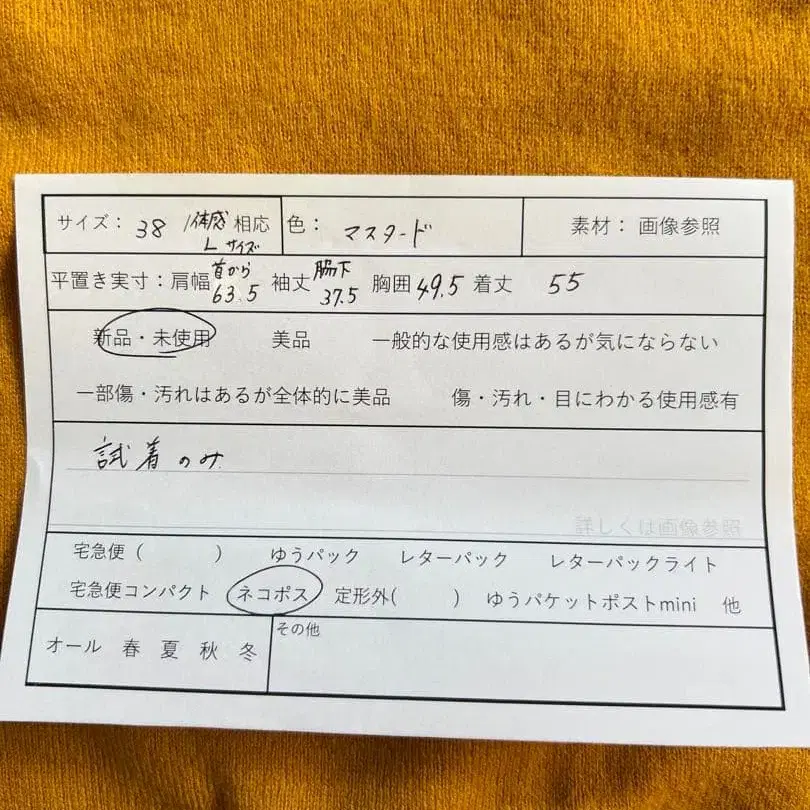 サイズ： 38 体感 相応 色： マスタード 素材： 画像参照
Lサイズ
平置き実寸：肩幅 首から 63.5 袖丈 脇下 37.5 胸囲 49.5 着丈 55
新品・未使用 美品 一般的な使用感はあるが気にならない
一部傷・汚れはあるが全体的に美品 傷・汚れ・目にわかる使用感有
試着のみ
詳しくは画像参照
宅急便（ ） ゆうパック レターパック レターパックライト
宅急便コンパクト ネコポス 定形外( ) ゆうパケットポストmini 他
オール 春 夏 秋 冬 その他